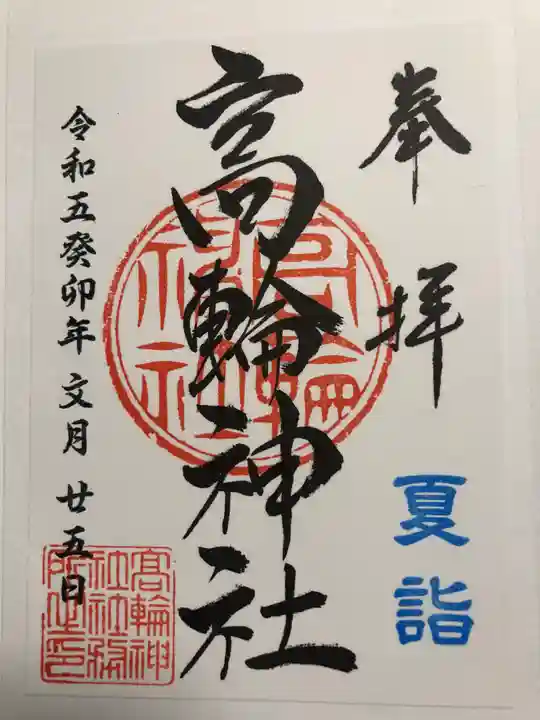 奉拝
夏詣
高輪神社
高輪神社
令和五癸卯年文月廿五日
高輪神
社社務
所之印